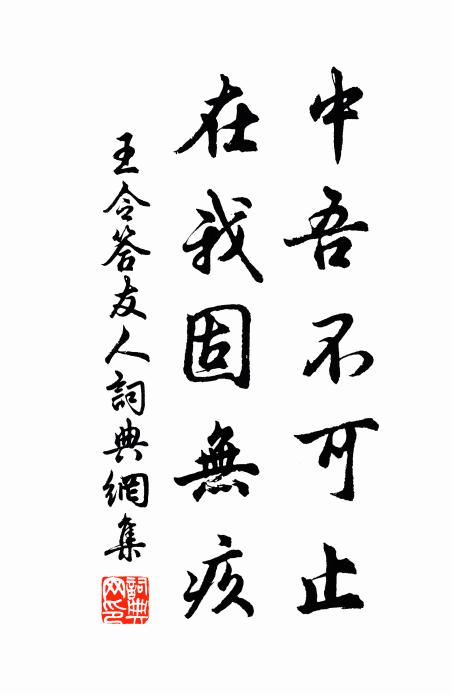 中吾不可止
在我固無疚
王令答友人詞典網集
詞典
网印